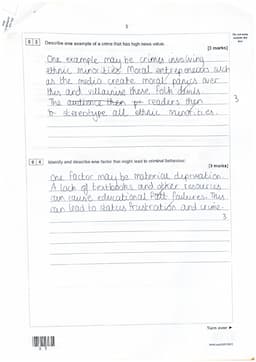 3
Do not write outside the box
0 3 Describe one example of a crime that has high news value.
[3 marks]
One example may be crimes involving
ethnic minorities. Moral entrepreneurs such
as the media create moral panics over
this and villainise these folk devils.
The audience then readers then
to stereotype all ethnic minorities.
3
0 4 Identify and describe one factor that might lead to criminal behaviour.
[3 marks]
One factor may be material deprivation.
A lack of textbooks and other resources
can cause educational failures. This
can lead to status frustration and crime.
3
Turn over